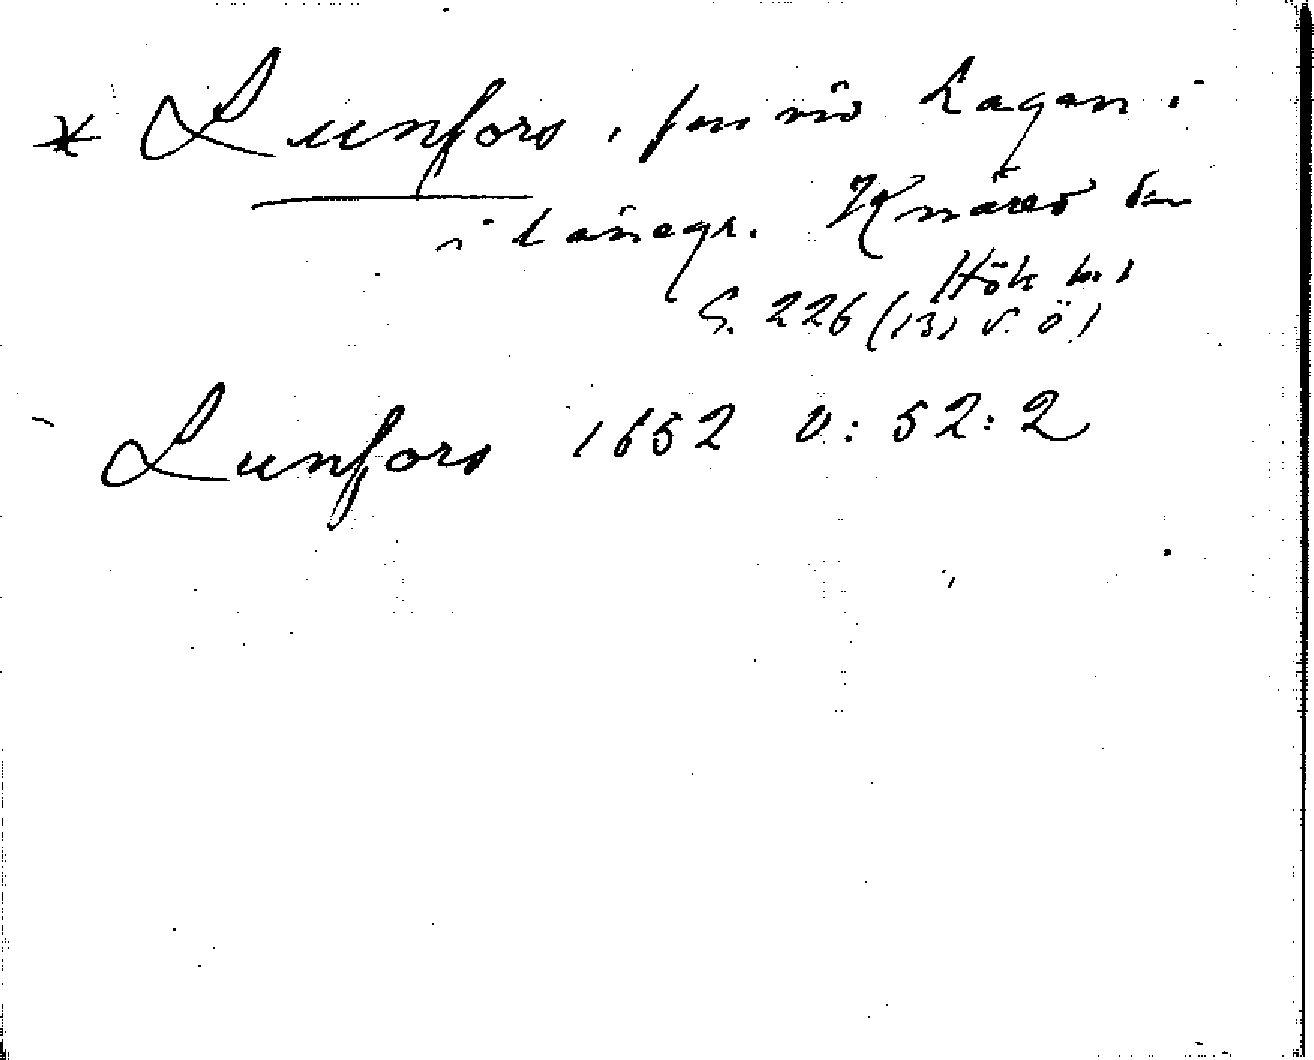 * Lunfors, fors vid Lagan i
i länsgr. Knäred sn
Hök hd
S. 226 (13) v. ö)
Lunfors 1652 O: 52: 2